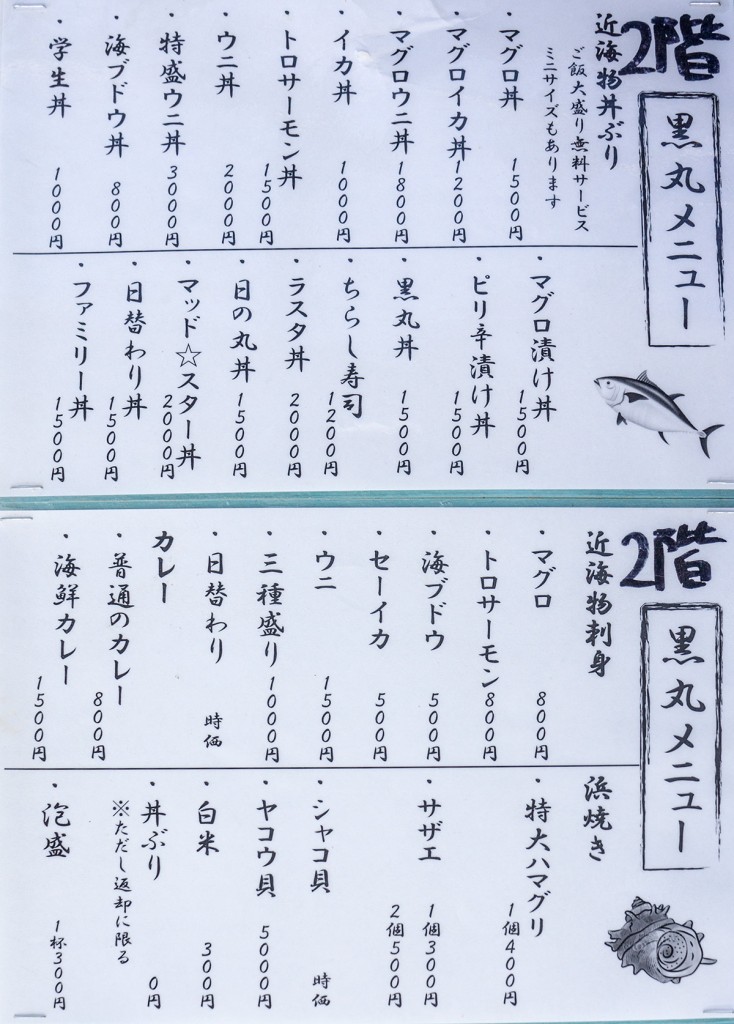 2階
黒丸メニュー
近海物丼ぶり
ご飯大盛り無料サービス
ミニサイズもあります
・マグロ丼 1500円
・マグロイカ丼 1200円
・マグロウニ丼 1800円
・イカ丼 1000円
・トロサーモン丼 1500円
・ウニ丼 2000円
・特盛ウニ丼 3000円
・海ブドウ丼 800円
・学生丼 1000円
・マグロ漬け丼 1500円
・ピリ辛漬け丼 1500円
・黒丸丼 1500円
・ちらし寿司 1200円
・ラスタ丼 2000円
・日の丸丼 1500円
・マッド☆スター丼 2000円
・日替わり丼 1500円
・ファミリー丼 1500円
2階
黒丸メニュー
近海物刺身
・マグロ 800円
・トロサーモン 800円
・海ブドウ 500円
・セーイカ 500円
・ウニ 1500円
・三種盛り 1000円
・日替わり 時価
カレー
・普通のカレー 800円
・海鮮カレー 1500円
浜焼き
・特大ハマグリ 1個400円
・サザエ 1個300円
2個500円
・シャコ貝 時価
・ヤコウ貝 5000円
・白米 300円
・丼ぶり 0円
※ただし返却に限る
・泡盛 1杯300円